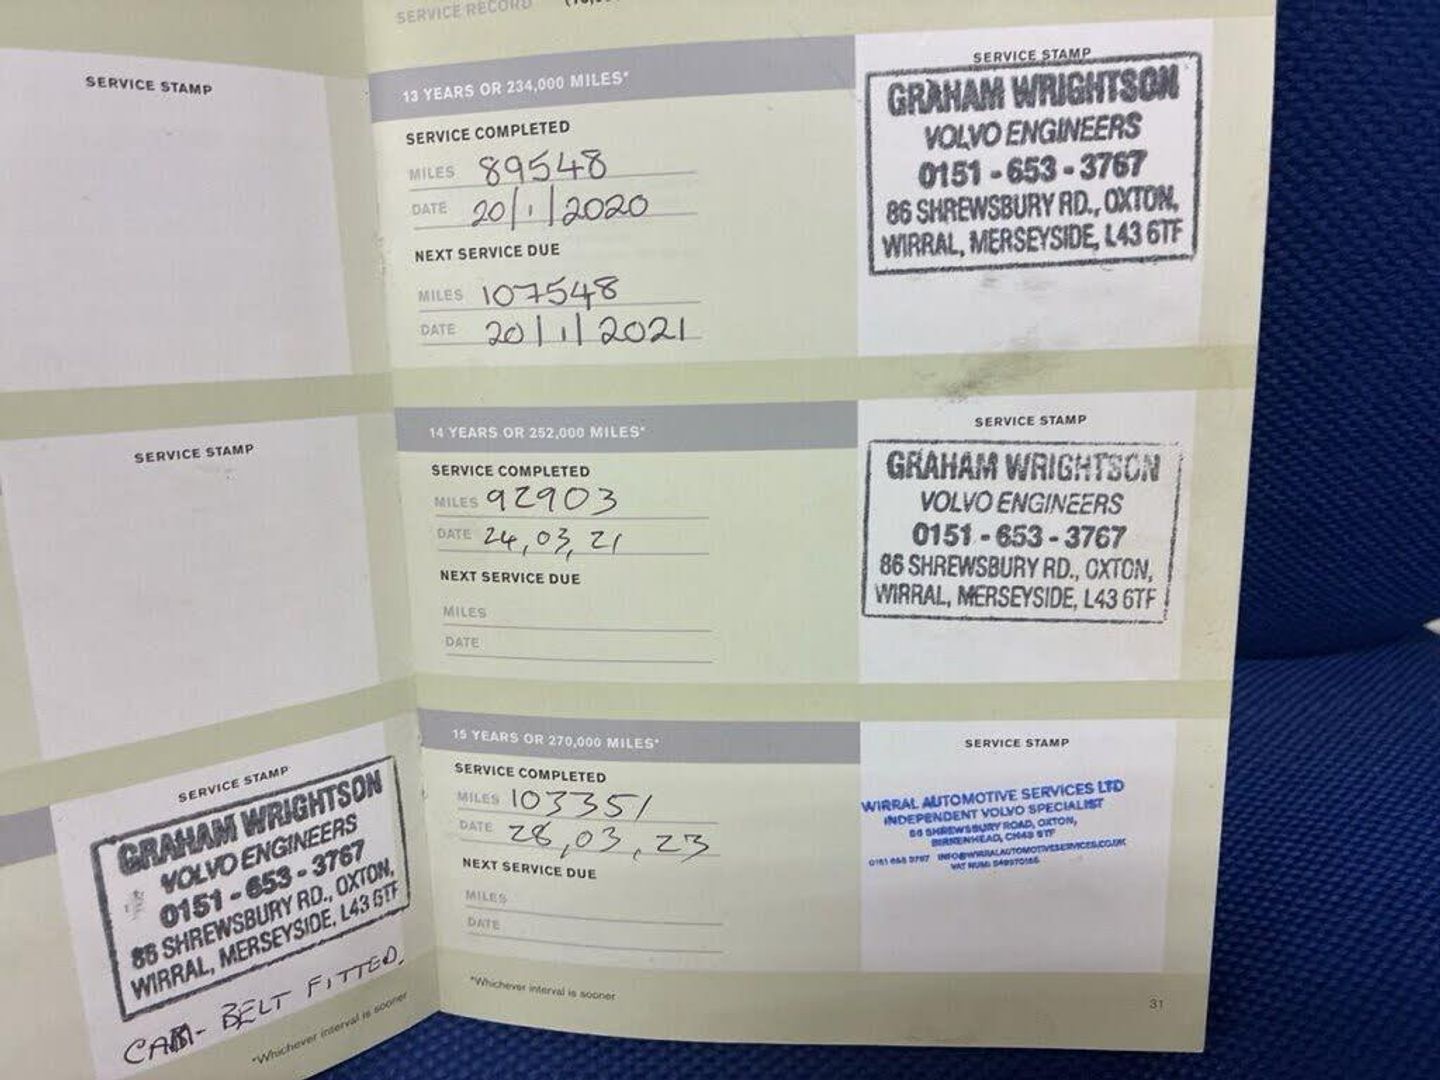 SERVICE STAMP
SERVICE STAMP
SERVICE STAMP
GRAHAM WRIGHTSON
VOLVO ENGINEERS
0151 - 653 - 3767
86 SHREWSBURY RD., OXTON,
WIRRAL, MERSEYSIDE, L43 6TF
CAM- BELT FITTED.
*Whichever interval is sooner
SERVICE RECORD
13 YEARS OR 234,000 MILES*
SERVICE COMPLETED
MILES 89548
DATE 20/1/2020
NEXT SERVICE DUE
MILES 107548
DATE 20/1/2021
SERVICE STAMP
GRAHAM WRIGHTSON
VOLVO ENGINEERS
0151 - 653 - 3767
86 SHREWSBURY RD., OXTON,
WIRRAL, MERSEYSIDE, L43 6TF
14 YEARS OR 252,000 MILES*
SERVICE COMPLETED
MILES 92903
DATE 24,03,21
NEXT SERVICE DUE
MILES
DATE
SERVICE STAMP
GRAHAM WRIGHTSON
VOLVO ENGINEERS
0151 - 653 - 3767
86 SHREWSBURY RD., OXTON,
WIRRAL, MERSEYSIDE, L43 6TF
15 YEARS OR 270,000 MILES*
SERVICE COMPLETED
MILES 103351
DATE 28,03,23
NEXT SERVICE DUE
MILES
DATE
SERVICE STAMP
WIRRAL AUTOMOTIVE SERVICES LTD
INDEPENDENT VOLVO SPECIALIST
86 SHREWSBURY ROAD, OXTON,
BIRKENHEAD, CH43 6TF
INFO@WIRRALAUTOMOTIVESERVICES.CO.UK
VAT NUM:
*Whichever interval is sooner
31